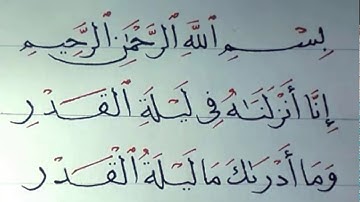 بِسْمِ ٱللَّهِ ٱلرَّحْمَٰنِ ٱلرَّحِيمِ
إِنَّا أَنْزَلْنَٰهُ فِي لَيْلَةِ ٱلْقَدْرِ
وَمَا أَدْرَىٰكَ مَا لَيْلَةُ ٱلْقَدْرِ